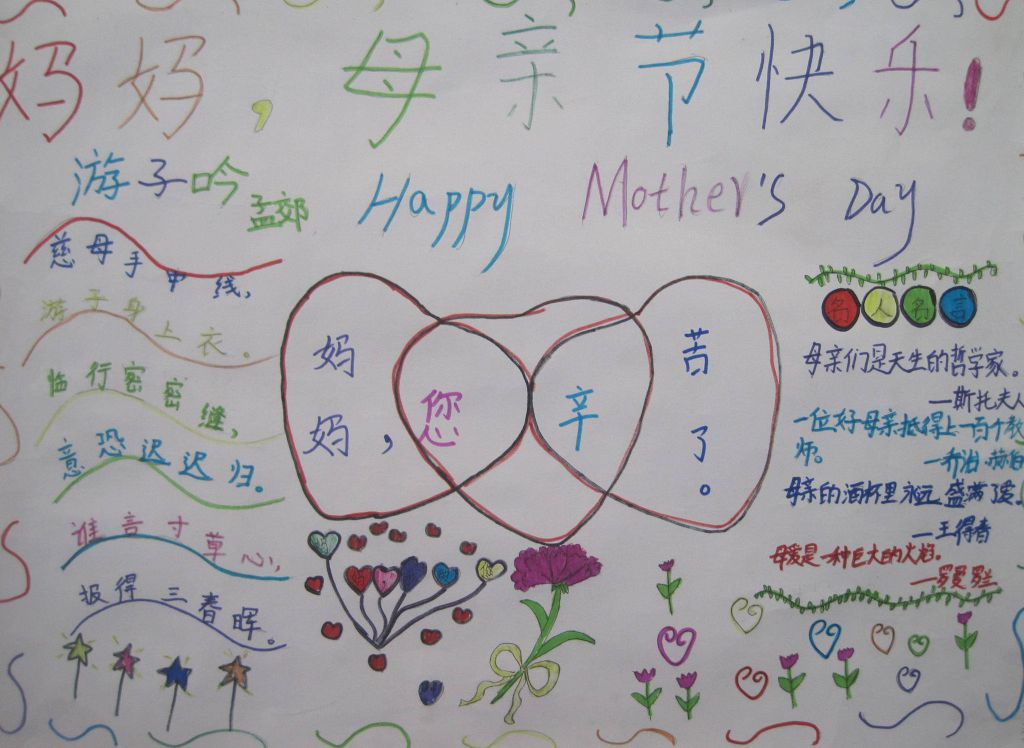 妈妈，母亲节快乐！
Happy Mother's Day
游子吟
孟郊
慈母手中线，
游子身上衣。
临行密密缝，
意恐迟迟归。
谁言寸草心，
报得三春晖。
妈妈，您辛苦了。
名人名言
母亲们是天生的哲学家。
—斯托夫人
一位好母亲抵得上一百个教
师。
—乔治·赫伯
母亲的酒杯里永远盛满了爱！
—王得春
母爱是一种巨大的火焰。
—罗曼罗兰